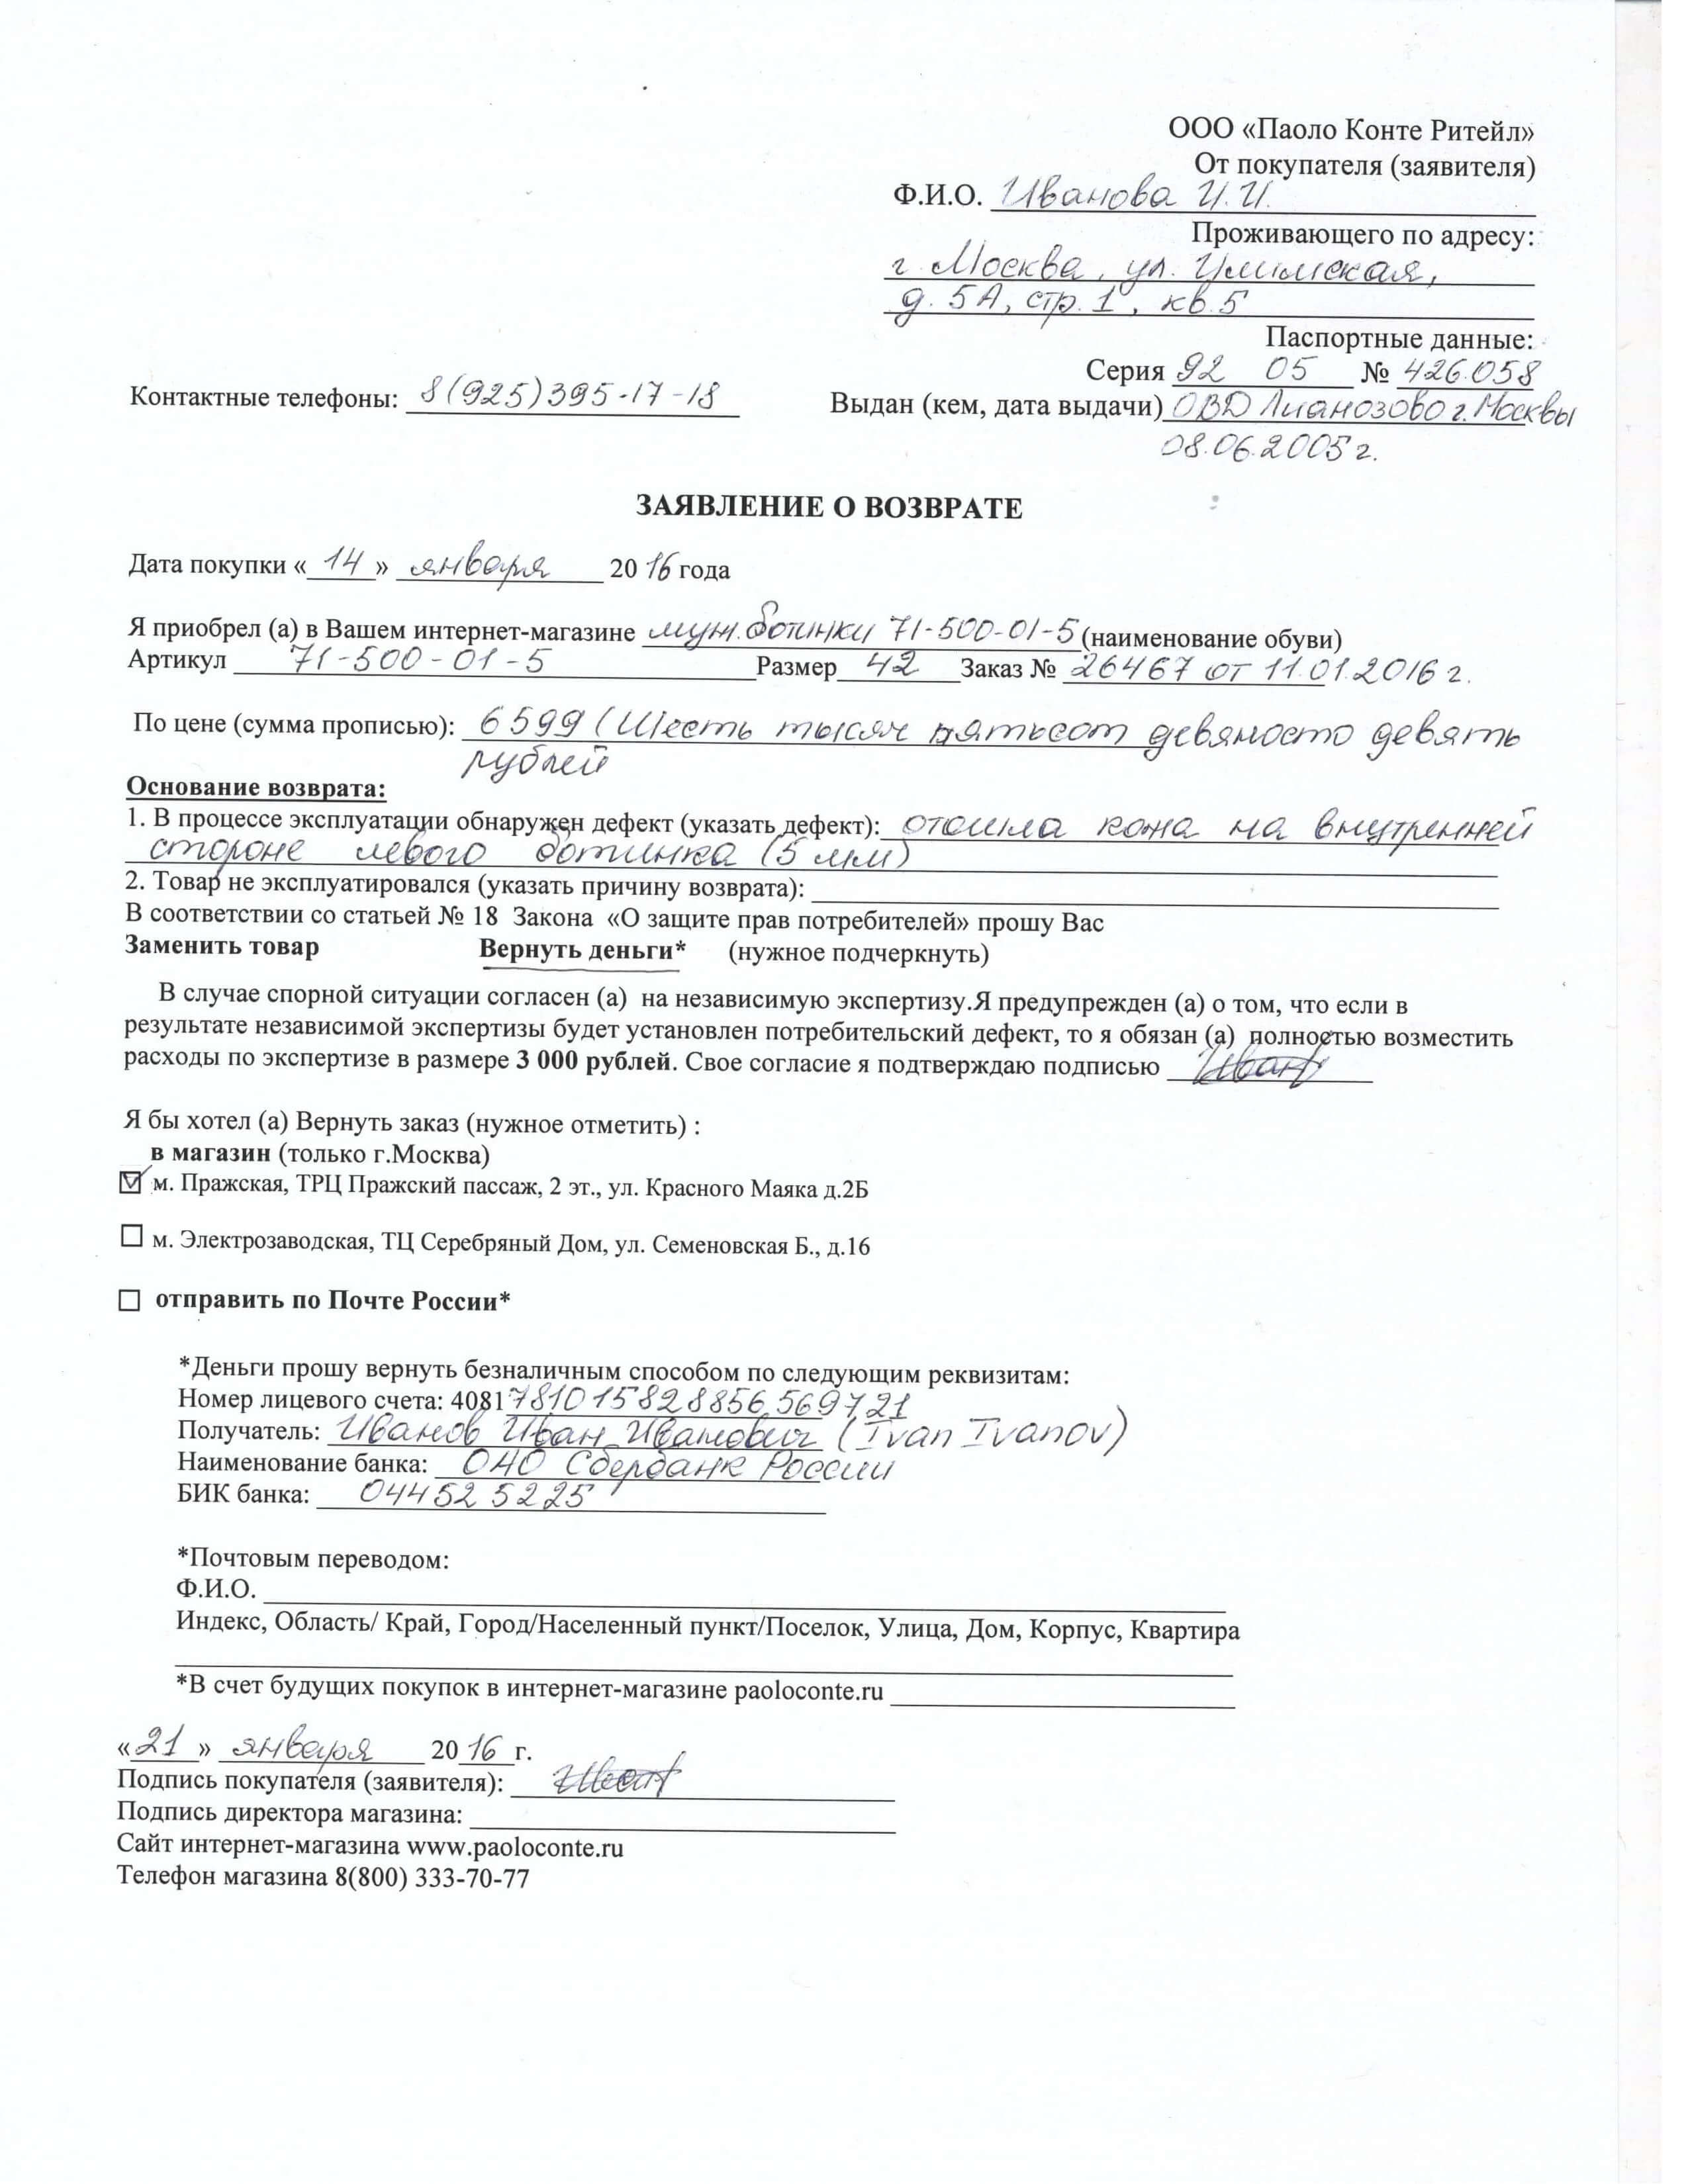 ООО «Паоло Конте Ритейл»
От покупателя (заявителя)
Ф.И.О. Иванова И.И.
Проживающего по адресу:
г. Москва, ул. Илимская,
д. 5А, стр. 1, кв. 5
Паспортные данные:
Серия 92 05 № 426058
Контактные телефоны: 8(925)395-17-18
Выдан (кем, дата выдачи) ОВД Лианозово г. Москвы
08.06.2005 г.
ЗАЯВЛЕНИЕ О ВОЗВРАТЕ
Дата покупки «14» января 2016 года
Я приобрел (а) в Вашем интернет-магазине муж. ботинки 71-500-01-5 (наименование обуви)
Артикул 71-500-01-5 Размер 42 Заказ № 26467 от 11.01.2016 г.
По цене (сумма прописью): 6599 (Шесть тысяч пятьсот девяносто девять
рублей
Основание возврата:
1. В процессе эксплуатации обнаружен дефект (указать дефект): отошла кожа на внутренней
стороне левого ботинка (5 мм)
2. Товар не эксплуатировался (указать причину возврата):
В соответствии со статьей № 18 Закона «О защите прав потребителей» прошу Вас
Заменить товар Вернуть деньги* (нужное подчеркнуть)
В случае спорной ситуации согласен (а) на независимую экспертизу.Я предупрежден (а) о том, что если в
результате независимой экспертизы будет установлен потребительский дефект, то я обязан (а) полностью возместить
расходы по экспертизе в размере 3 000 рублей. Свое согласие я подтверждаю подписью
Я бы хотел (а) Вернуть заказ (нужное отметить) :
в магазин (только г.Москва)
м. Пражская, ТРЦ Пражский пассаж, 2 эт., ул. Красного Маяка д.2Б
м. Электрозаводская, ТЦ Серебряный Дом, ул. Семеновская Б., д.16
отправить по Почте России*
*Деньги прошу вернуть безналичным способом по следующим реквизитам:
Номер лицевого счета: 4081781015828856569721
Получатель: Иванов Иван Иванович (Ivan Ivanov)
Наименование банка: ОАО Сбербанк России
БИК банка: 044525225
*Почтовым переводом:
Ф.И.О.
Индекс, Область/ Край, Город/Населенный пункт/Поселок, Улица, Дом, Корпус, Квартира
*В счет будущих покупок в интернет-магазине paoloconte.ru
«21» января 2016 г.
Подпись покупателя (заявителя):
Подпись директора магазина:
Сайт интернет-магазина www.paoloconte.ru
Телефон магазина 8(800) 333-70-77